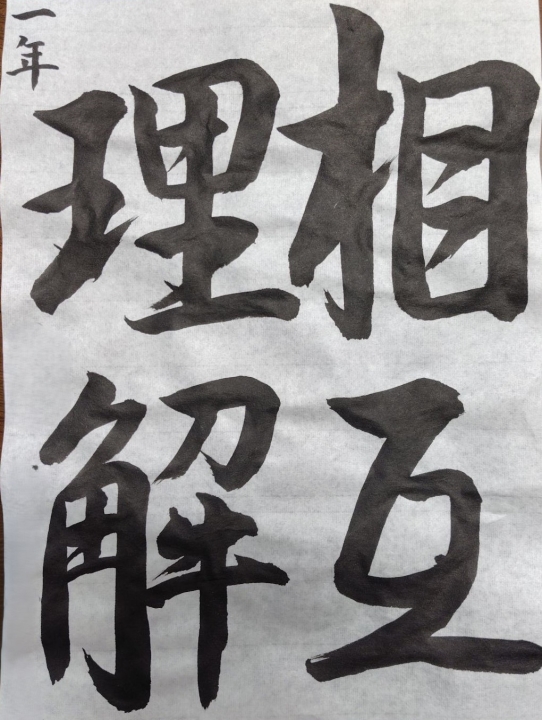 相互
理解
一年